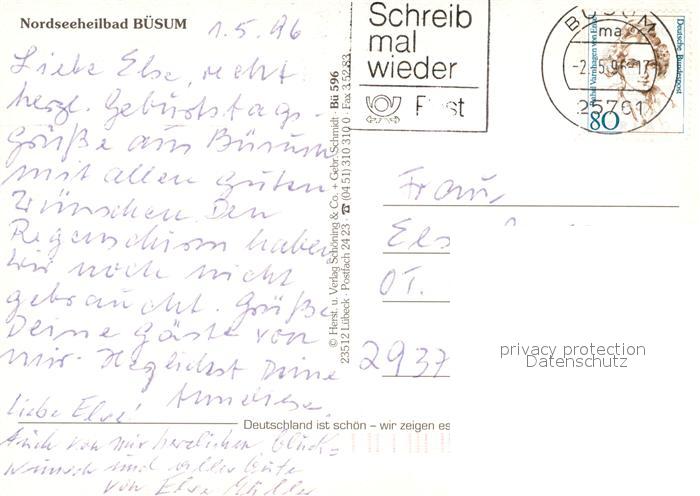 Nordseeheilbad BÜSUM
1.5.96
Liebe Else, recht
herzl. Geburtstags-
grüße aus Büsum
mit allen guten
Wünschen. Den
Regenschirm haben
wir noch nicht
gebraucht. Grüße
Deine Gäste von
mir. Herzlichst Deine
Anneliese.
Liebe Else!
Auch von mir herzlichen Glück-
wunsch und alles Gute
von Else Müller
© Herst. u. Verlag Schöning & Co. + Gebr. Schmidt · Bü 596
23512 Lübeck · Postfach 24 23 · ☎ (04 51) 310 310 0 · Fax 3 52 83
Schreib
mal
wieder
Post
BÜSUM
ma
-2.-5.96-17
25761
Deutsche Bundespost
Rahel Varnhagen von Ense
80
Frau
Els
OT.
2937
privacy protection
Datenschutz
Deutschland ist schön – wir zeigen es